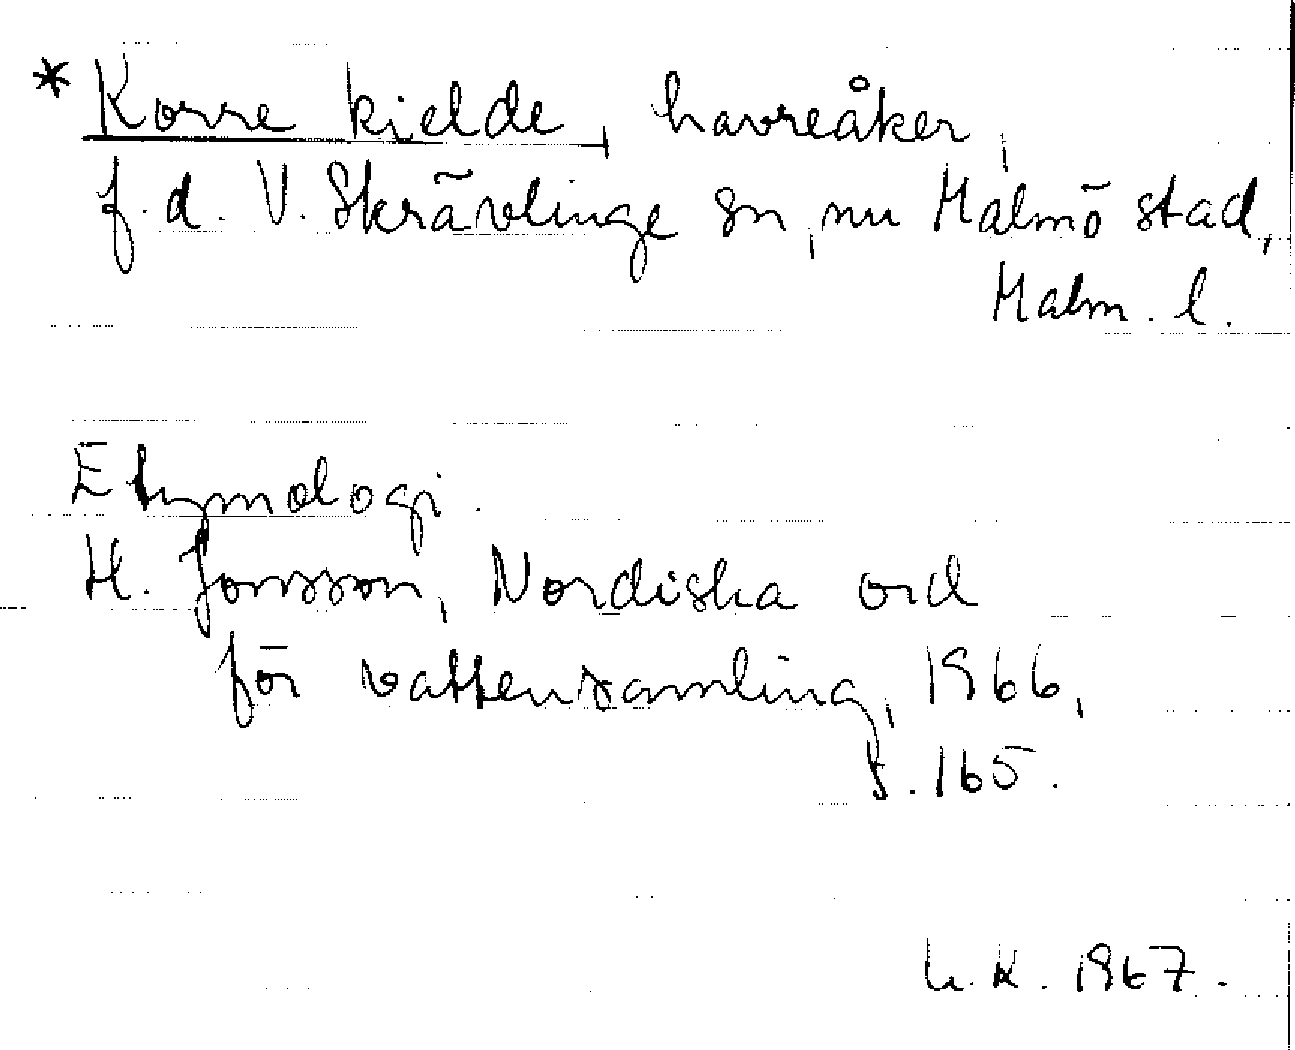 * Korre kielde, havreåker,
f.d. V. Skrävlinge sn, nu Malmö stad,
Malm. l.
Etymologi.
H. Jonsson, Nordiska ord
för vattensamling, 1966,
s. 165.
U.K. 1967.